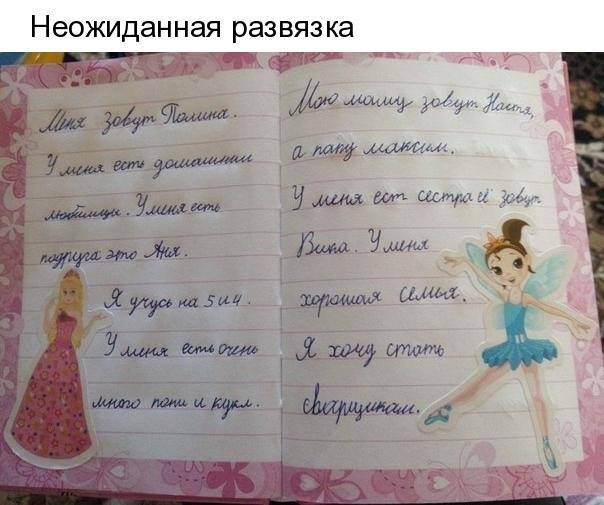 Неожиданная развязка
Меня зовут Полина.
У меня есть домашнии
любимици. У меня есть
подруга это Аня.
Я учусь на 5 и 4.
У меня есть очень
много пони и кукл.
Мою маму зовут Настя,
а папу максим.
У меня ест сестра её зовут
Вика. У меня
хорошая семья.
Я хочу стать
сварщикам.